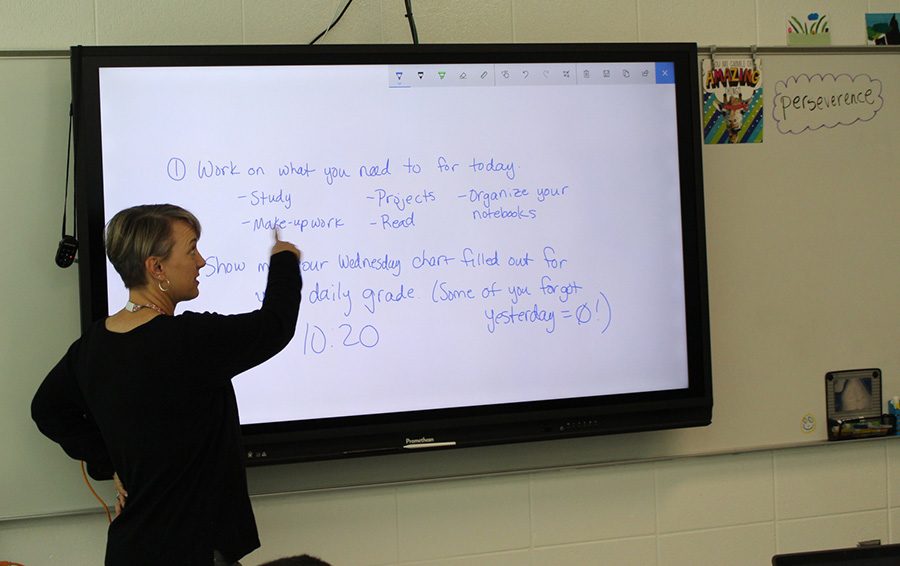 AMAZING
perseverence
① Work on what you need to for today.
- Study - Projects - Organize your
notebooks
- Make-up work - Read
Show our Wednesday chart filled out for
daily grade. (Some of you forgot
yesterday = Ø!)
10:20
Promethean